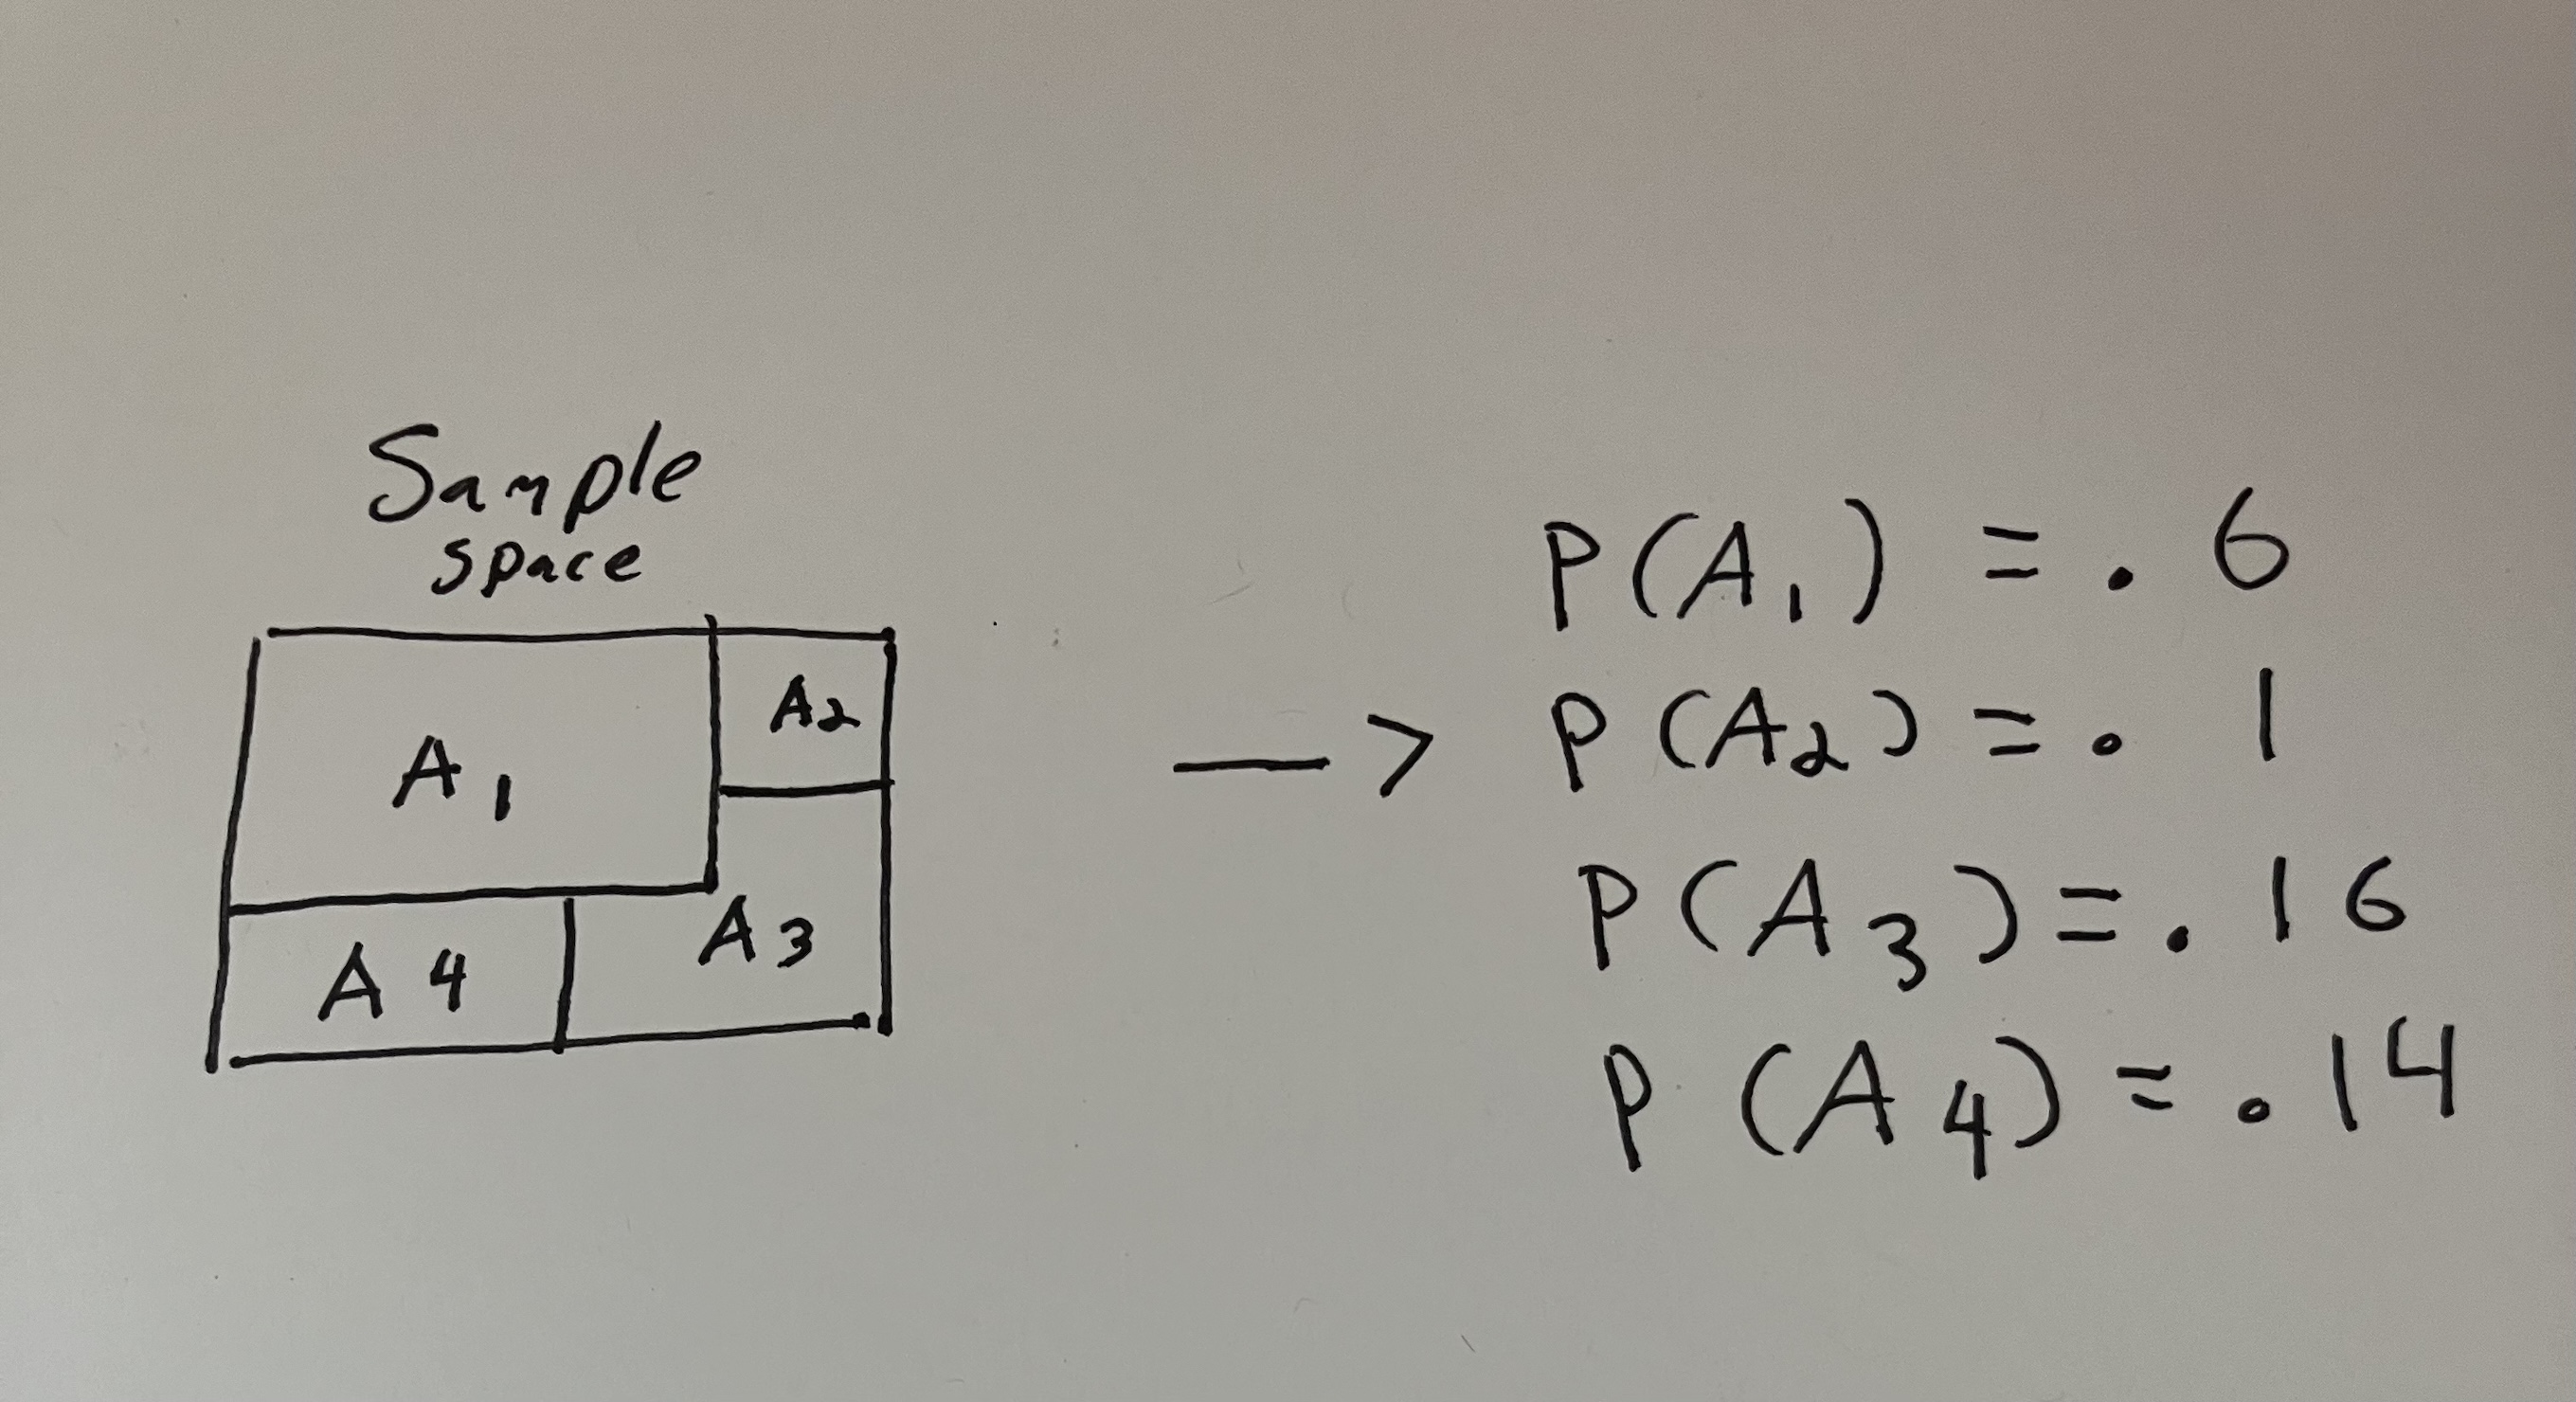 Sample
space
A1
A2
A3
A4
—> P(A1) = .6
P(A2) = .1
P(A3) = .16
P(A4) = .14